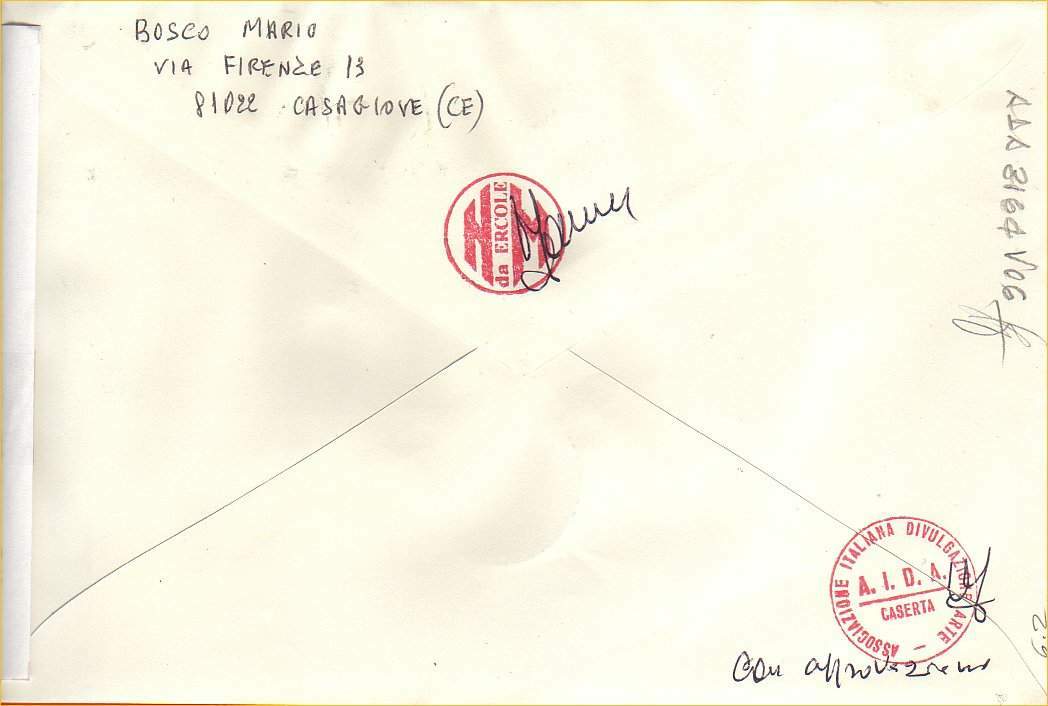 BOSCO MARIO
VIA FIRENZE 13
81022 CASAGIOVE (CE)
da ERCOLE
NM
ASSOCIAZIONE ITALIANA DIVULGAZIONE ARTE
A. I. D. A.
CASERTA
Con approvazione
6.2